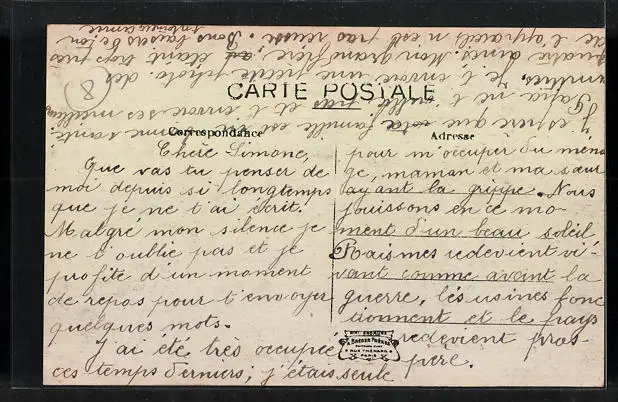 CARTE POSTALE
Correspondance
Adresse
Chère Simone,
Que vas tu penser de
moi depuis si longtemps
que je ne t'ai écrit.
Malgré mon silence je
ne t'oublie pas et je
profite d'un moment
de repos pour t'envoyer
quelques mots.
J'ai été très occupée
ces temps derniers; j'étais seule
pour m'occuper du ména
ge, maman et ma sœur
ayant la grippe. Nous
jouissons en ce mo
ment d'un beau soleil
Raismes redevient vi-
vant comme avant la
guerre, les usines fonc
tionnent et le pays
redevient pros-
père.
J'espère que votre famille est en bonne santé.
Papa ne t'oublie pas et t'envoie ses meilleures
amitiés. Je t'envoie une petite photo des
quatre amis. Mon grand frère étant trop près
de l'appareil n'est pas réussi. Bons baisers de ton
amie
8
BREGER FRÈRES
9 RUE THÉNARD
PARIS